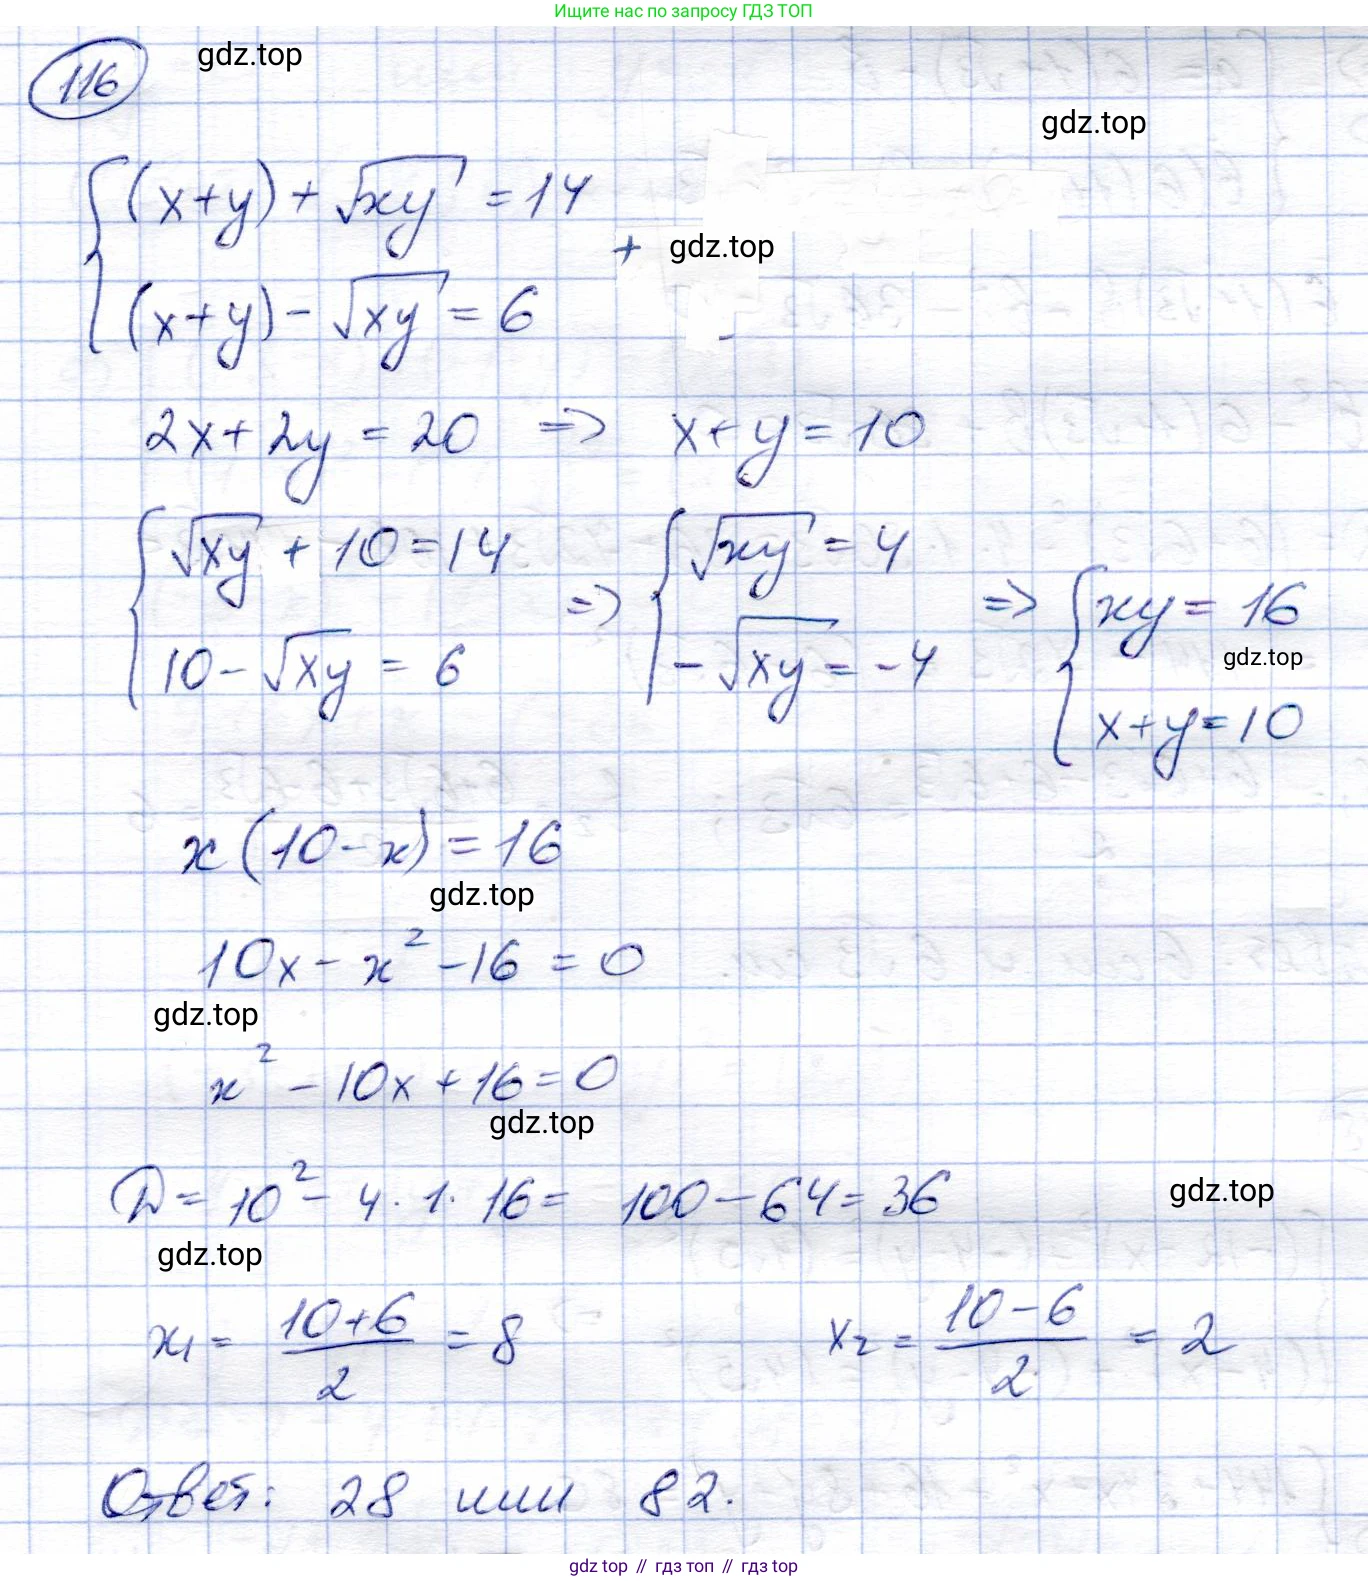 Ищите нас по запросу ГДЗ ТОП
116
gdz.top
gdz.top
(x+y) + √xy = 14
+ gdz.top
(x+y) - √xy = 6
-
2x + 2y = 20 => x + y = 10
√xy + 10 = 14
10 - √xy = 6
=>
√xy = 4
-√xy = -4
=>
xy = 16
gdz.top
x + y = 10
x(10 - x) = 16
gdz.top
10x - x² - 16 = 0
gdz.top
x² - 10x + 16 = 0
gdz.top
D = 10² - 4 · 1 · 16 = 100 - 64 = 36
gdz.top
gdz.top
x₁ = (10+6)/2 = 8 x₂ = (10-6)/2 = 2
Ответ: 28 или 82.
gdz top // гдз топ // гдз top